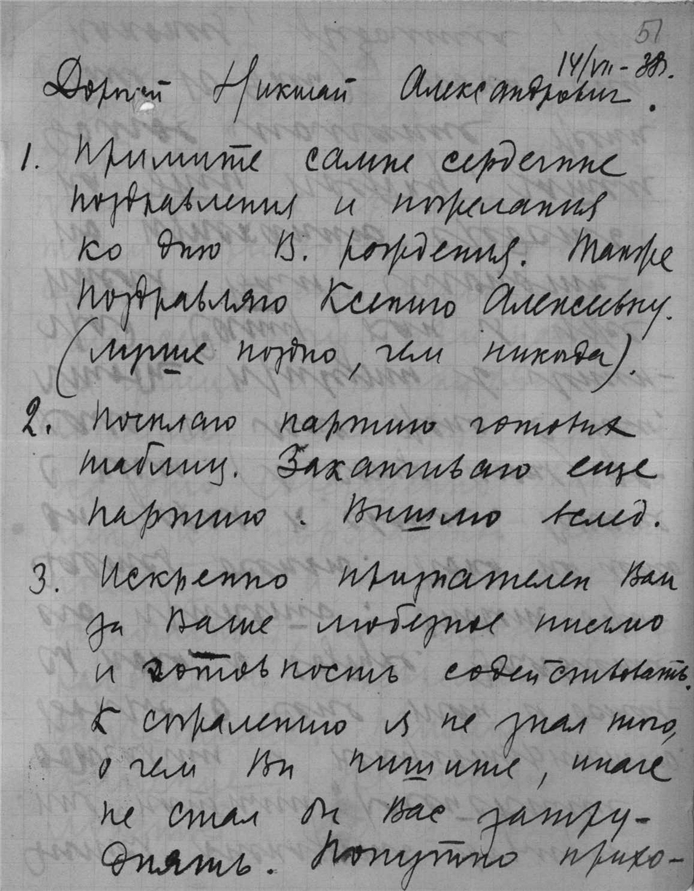 51
14/VII-38г.
Дорогой Николай Александрович.
1. Примите самые сердечные
поздравления и пожелания
ко дню В. рождения. Также
поздравляю Ксению Алексеевну.
(лучше поздно, чем никогда).
2. Посылаю партию готовых
таблиц. Заканчиваю еще
партию. Вышлю вслед.
3. Искренно признателен Вам
за Ваше любезное письмо
и готовность содействовать.
К сожалению я не знал того,
о чем Вы пишите, иначе
не стал бы Вас затру-
днять. Попутно прихо-